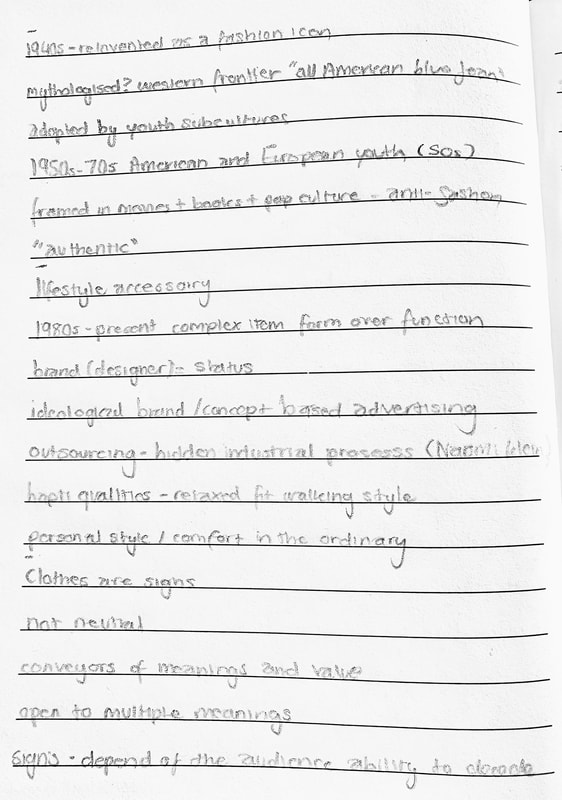 1940s - reinvented as a fashion icon
mythologised? western frontier "all American blue jeans
adopted by youth subcultures
1950s-70s American and European youth (50s)
framed in movies + books + pop culture - anti-fashion
"authentic"
lifestyle accessory
1980s-present complex item form over function
brand (designer) = status
ideological brand / concept based advertising
outsourcing - hidden industrial processs (Naomi Klein)
qualities - relaxed fit walking style
personal style / comfort in the ordinary
Clothes are signs
not neutral
conveyors of meanings and value
open to multiple meanings
signs - depend of the audience ability to